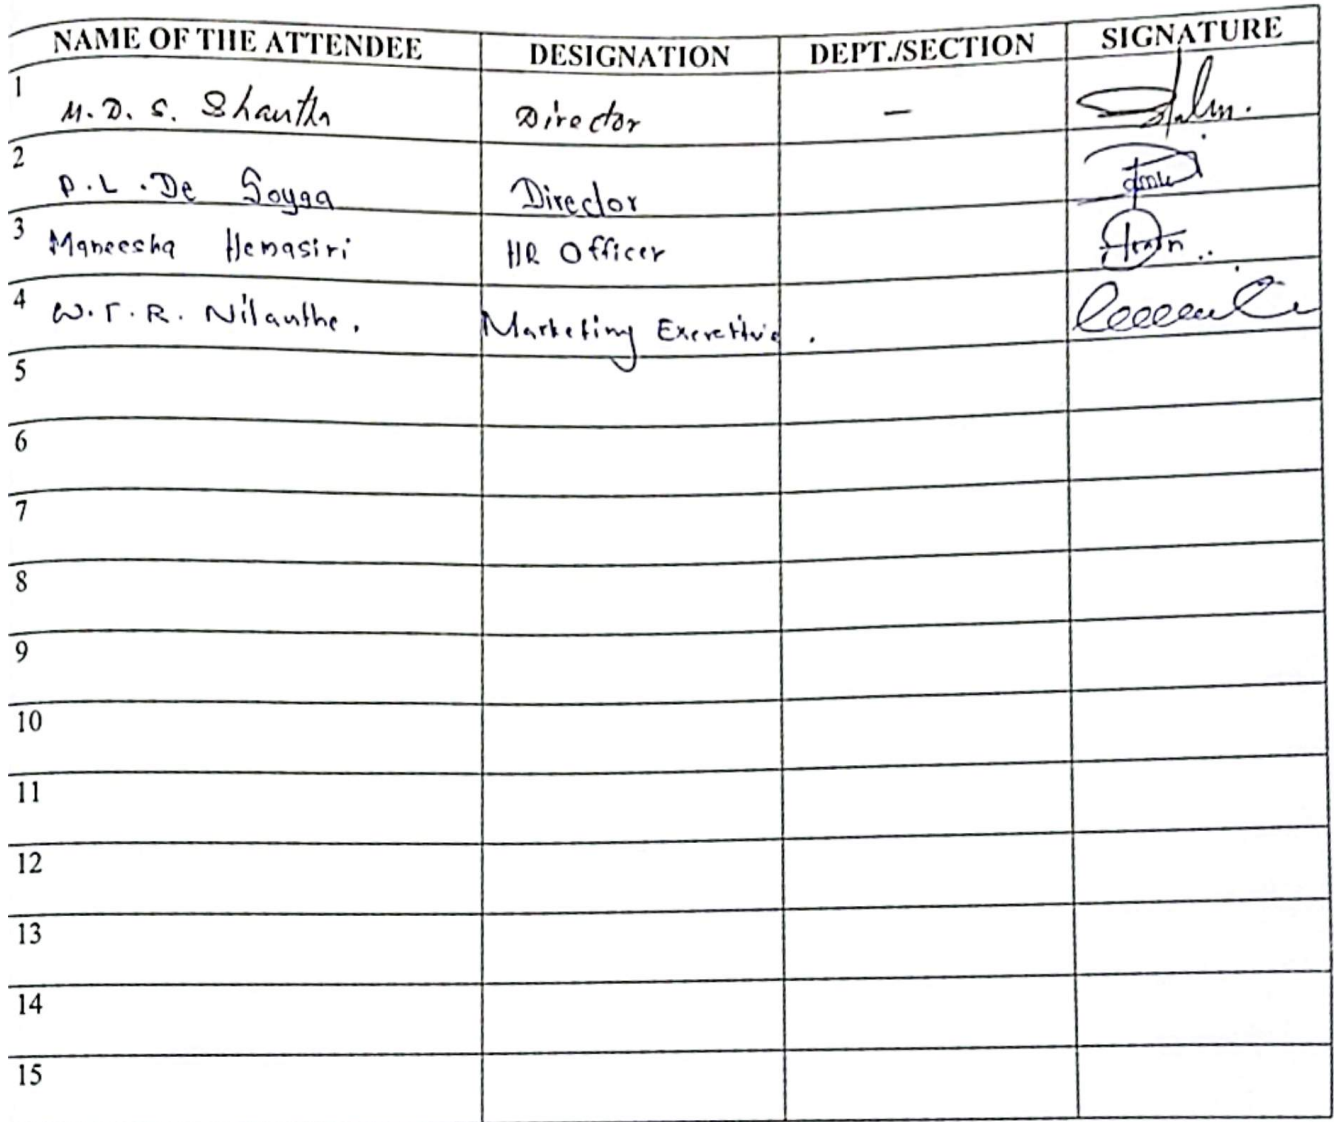 NAME OF THE ATTENDEE DESIGNATION DEPT./SECTION SIGNATURE
1 M.D.S. Shantha Director –
2 P.L.De Soysa Director
3 Maneesha Hemasiri HR Officer
4 W.T.R. Nilantha. Marketing Executive .
5
6
7
8
9
10
11
12
13
14
15